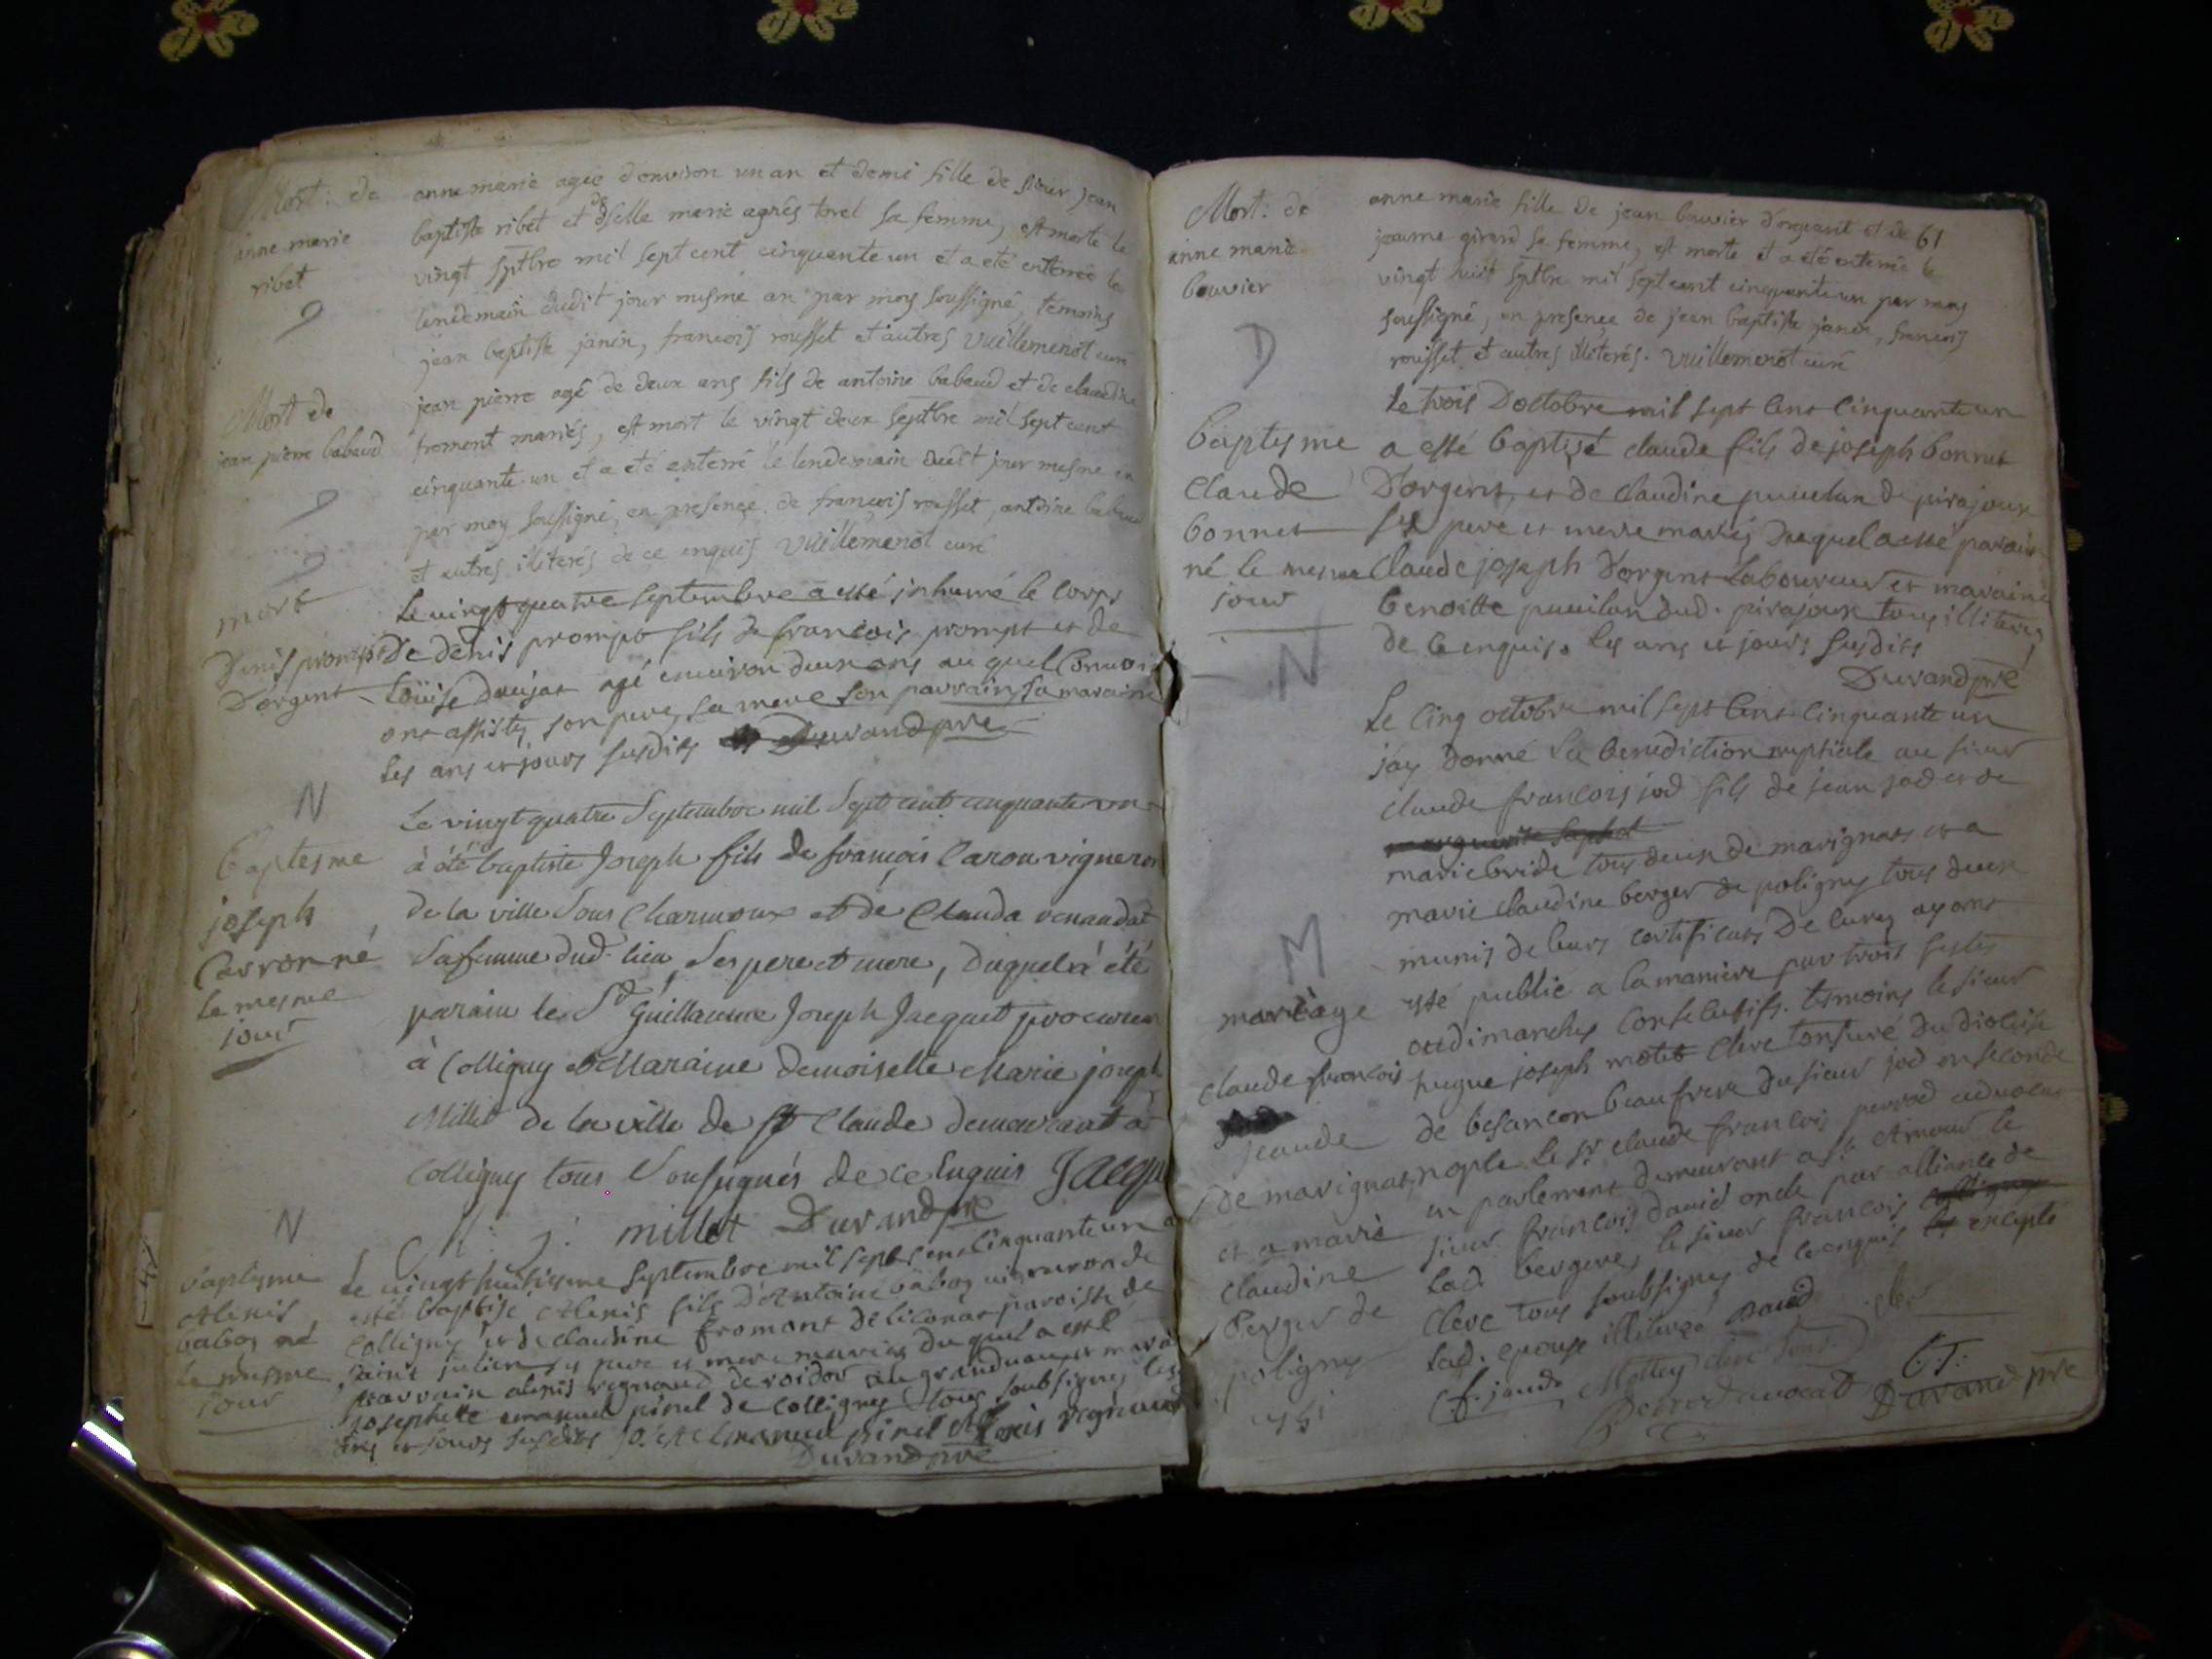 Mort: de
anne marie
ribet
anne marie agée d'environ un an et demi fille de sieur jean
baptiste ribet et dselle marie agnês torel sa femme, est morte le
vingt sptbre mil sept cent cinquante un et a eté enterrée le
lendemain dudit jour mesme an par moy soussigné, temoins
jean baptiste janin, francois rousset et autres Vuillemenot curé
Mort de
jean pierre babaud
jean pierre agé de deux ans fils de antoine babaud et de claudine
froment mariés, est mort le vingt deux septbre mil sept cent
cinquante un et a eté enterré le lendemain dudit jour mesme an
par moy soussigné, en presence de francois rousset, antoine babaud
et autres illiterés de ce enquis Vuillemenot curé
mort
Denis prompt
D'orgent
Le vingt quatre septembre a esté inhumé le corps
De denis prompt fils de francois prompt et de
Loüise agé environ deux ans au quel convoi
ont assisté son pere, sa mere son parrain, sa maraine
les ans et jours susdits Durand pre
N
Baptesme
joseph
Carron né
le mesme
jour
Le vingt quatre Septembre mil Sept cent cinquante un
à été baptisé Joseph fils de françois Caron vigneron
de la ville Sous Charmoux et de Clauda renaudat
Sa femme dud. lieu Ses pere et mere, Duquel à été
parain le Sr Guillaume Joseph Jacquet procureur
à Colligny et Maraine Demoiselle Marie joseph
Millet de la ville de St Claude demeurant à
Colligny tous Soussignés de ce Enquis Jacqu
M: j: millet Durand pre
N
Baptesme
Alexis
baboz né
le mesme
jour
Le vingt huitiesme septembre mil sept cent cinquante un a
esté baptisé Alexis fils D'Antoine baboz vigneron de
Colligny et de claudine fromont de liconas paroisse de
saint julien ses pere et mere mariés du quel a esté
parrain alexis regnaud de
josephette emanuel pinel de Colligny tous soubsignés les
ans et jours susdits jo. Emanuel pinel Alexis regnaud
Durand pre
61
Mort: de
anne marie
bouvier
D
anne marie fille de jean bouvier d'orgeant et de
jeanne girard sa femme, est morte et a eté enterrée le
vingt huit sptbre mil sept cent cinquante un par moy
soussigné, en presence de jean baptiste janin, francois
rousset et autres illiterés. Vuillemenot curé
Baptesme
Claude
bonnet
né le mesme
jour
N
Le trois D'octobre mil sept cent cinquante un
a esté baptisé claude fils de joseph bonnet
D'orgent, et de claudine de pirajoux
ses pere et mere mariés Duquel a esté parain
Claude joseph D'orgent Laboureur et maraine
benoitte dud. pirajoux tous illiterés
de ce enquis. les ans et jours susdits
Durand pre
M
mariage
claude francois
jeaude
de marignat
et a marie
Claudine
Berger de
poligny
Le cinq octobre mil sept cent cinquante un
jay donné la benediction nuptiale au sieur
claude francois jod fils de jean jod et de
marie bride tous deux de marignat et a
marie claudine berger de poligny tous deux
munis de leurs certificats De curez ayant
esté publié a la maniere par trois festes
ou dimanches consecutifs. tesmoins le sieur
hugue joseph motet clerc tonsuré du diocese
de besancon beaufrere du sieur jod en seconde
nopce le Sr. claude francois perrod advocat
en parlement demeurant a St. Amour le
sieur francois david oncle par alliance de
lad. bergere, le sieur francois
clerc tous soubsignés de ce enquis excepté
lad. epouse illiterée David
C. f. jaude Mottey clerc tons.
Perrod avocat Durand pre